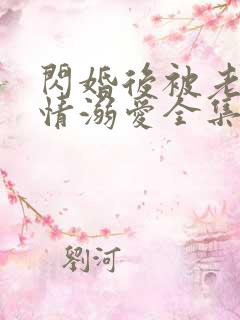 閃婚後被老
情溺愛全集
劉河